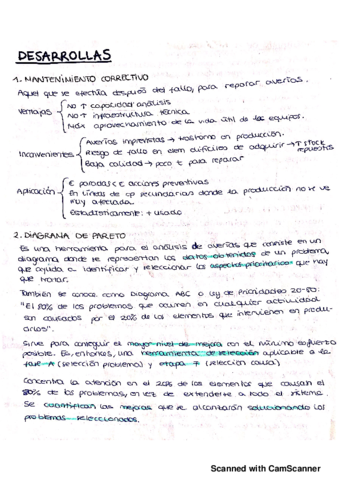 DESARROLLAS
1. MANTENIMIENTO CORRECTIVO
Aquel que se efectúa después del fallo, para reparar averías.
Ventajas { No ↑ capacidad análisis
No ↑ infraestructura técnica
Máx aprovechamiento de la vida útil de los equipos.
Inconvenientes { Averías imprevistas → trastorno en producción.
Riesgo de fallo en elem difíciles de adquirir → ↑ STOCK repuestos
Baja calidad → poco t para reparar
Aplicación { € paradas < € acciones preventivas
En líneas de op secundarias donde la producción no se ve
muy afectada.
Estadísticamente: + usado
2. DIAGRAMA DE PARETO
Es una herramienta para el análisis de averías que consiste en un
diagrama donde se representan los datos obtenidos de un problema,
que ayuda a identificar y seleccionar los aspectos prioritarios que hay
que tratar.
También se conoce como Diagrama ABC o Ley de Prioridades 20-80:
"El 80% de los problemas que ocurren en cualquier actividad
son causados por el 20% de los elementos que intervienen en produ-
cirlos".
Sirve para conseguir el mayor nivel de mejora con el mínimo esfuerzo
posible. Es, entonces, una herramienta de selección aplicable a la
fase A (selección problema) y etapa 7 (selección causa)
Concentra la atención en el 20% de los elementos que causan el
80% de los problemas, en vez de extenderse a todo el sistema.
Se cuantifican las mejoras que se alcanzarán solucionando los
problemas seleccionados.
Scanned with CamScanner